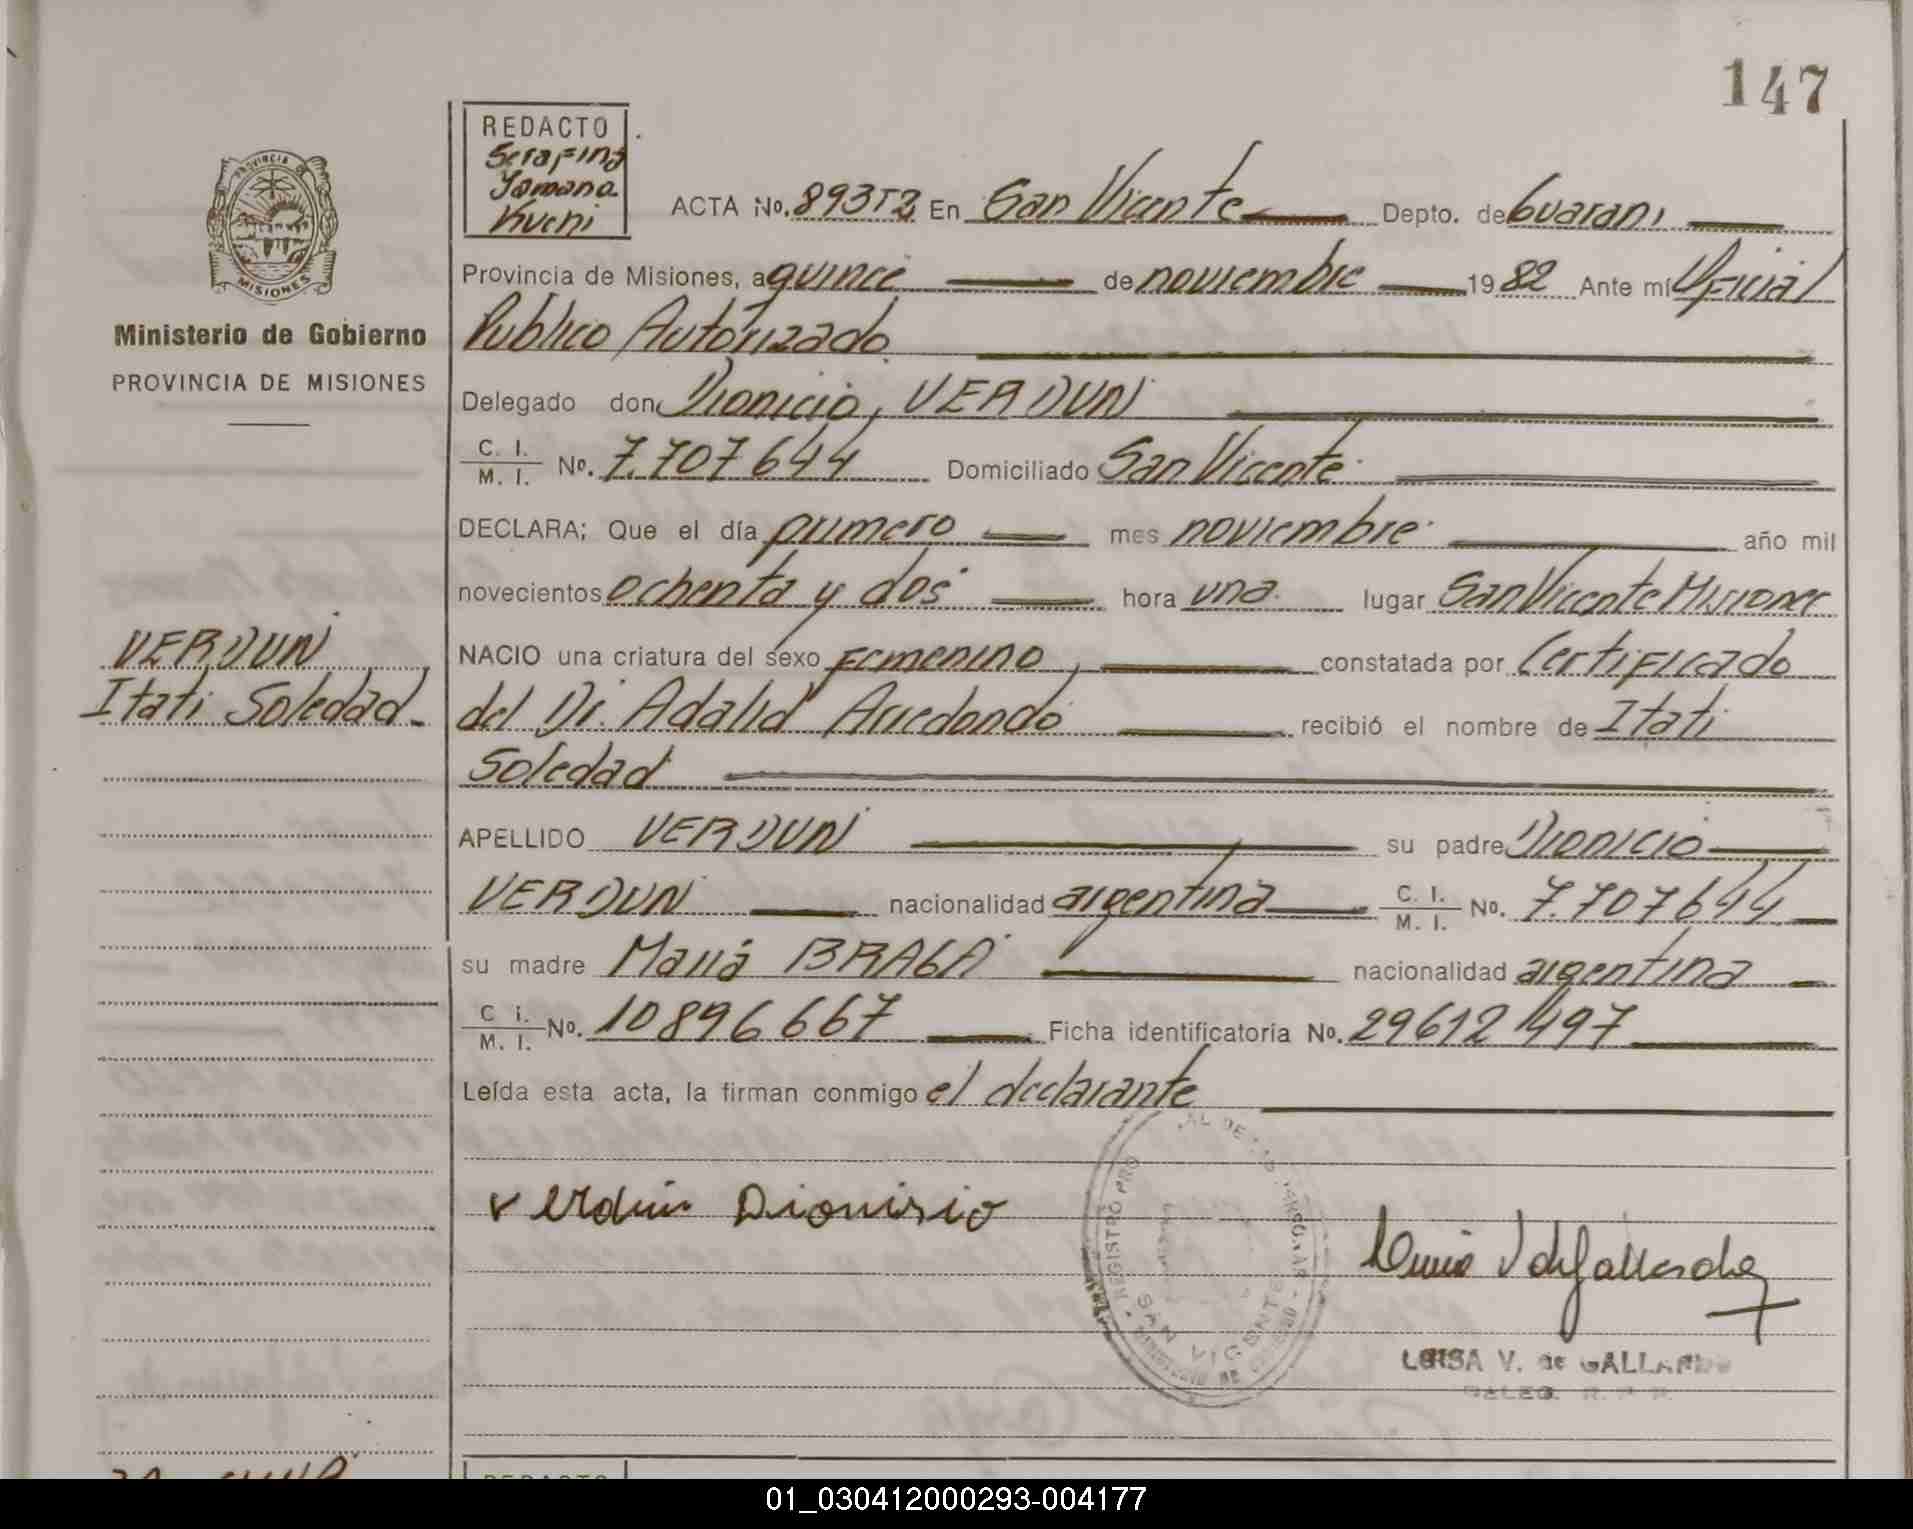 147
REDACTO
Serafina
Yamana
Kueni
PROVINCIA
MISIONES
Ministerio de Gobierno
PROVINCIA DE MISIONES
ACTA No. 893T2 En San Vicente Depto. de Guarani
Provincia de Misiones, a quince de noviembre 1982 Ante mi Oficial
Publico Autorizado
Delegado don Dionicio, VERDUN
C. I.
M. I. No. 7.707644 Domiciliado San Vicente
DECLARA; Que el día primero mes noviembre año mil
novecientos ochenta y dos hora una lugar San Vicente Misiones
VERDUN
Itati Soledad
NACIO una criatura del sexo Femenino, constatada por Certificado
del Dr. Adalid Arredondo recibió el nombre de Itati
Soledad
APELLIDO VERDUN su padre Dionicio
VERDUN nacionalidad argentina C. I.
M. I. No. 7.707644
su madre Maria BRAGA nacionalidad argentina
C i.
M. I. No. 10896667 Ficha identificatoria No. 29612497
Leída esta acta, la firman conmigo el declarante
Verdun Dionisio
REGISTRO PRO AL DE LAS PERSONAS
SAN VICENTE
LUISA V. de GALLARDO
DELEG. R. P. P.
REDACTO
01_030412000293-004177